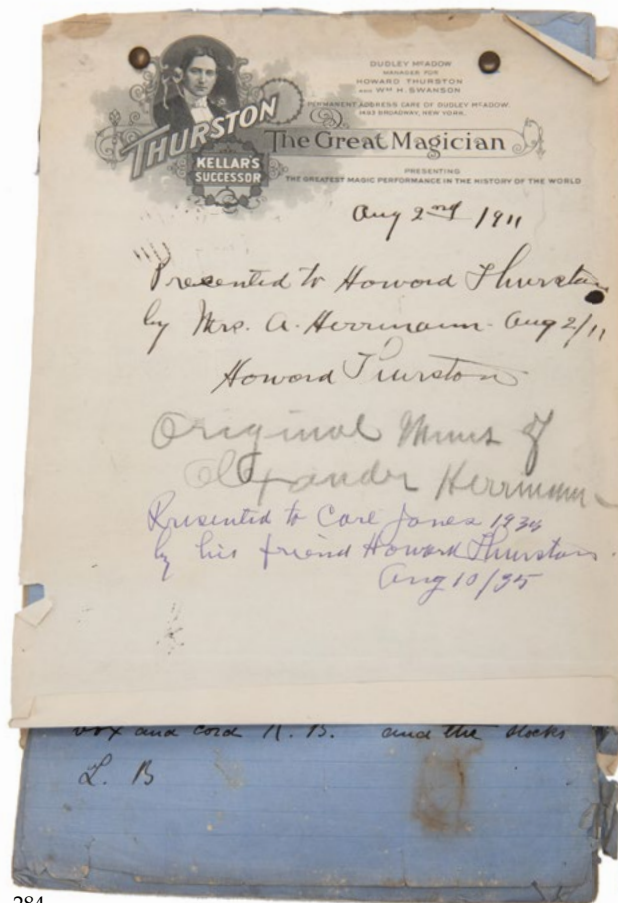 DUDLEY McADOW
MANAGER FOR
HOWARD THURSTON
AND WM H. SWANSON
PERMANENT ADDRESS CARE OF DUDLEY McADOW.
1493 BROADWAY, NEW YORK.
THURSTON
The Great Magician
KELLAR'S
SUCCESSOR
PRESENTING
THE GREATEST MAGIC PERFORMANCE IN THE HISTORY OF THE WORLD
Aug 2nd /911
Presented to Howard Thurston
by Mrs. A. Herrmann - Aug 2/11
Howard Thurston
Original of
Alexander Herrmann
Presented to Carl Jones
by his friend Howard Thurston.
Aug 10/35
box and cord R. B. and the blocks
L. B
284